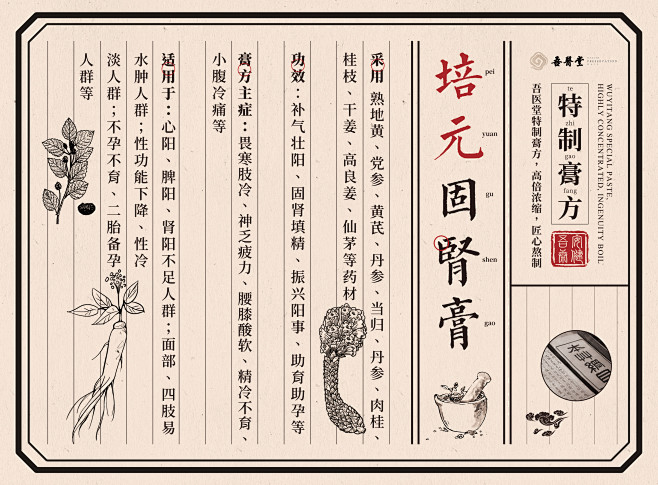 吾醫堂
te
zhi
gao
fang
特制膏方
WUYITANG SPECIAL PASTE,
HIGHLY CONCENTRATED, INGENUITY BOIL
吾医堂特制膏方，高倍浓缩，匠心熬制
pei
yuan
gu
shen
gao
培元固腎膏
采用 熟地黄、党参、黄芪、丹参、当归、丹参、肉桂、
桂枝、干姜、高良姜、仙茅等药材
功效：补气壮阳、固肾填精、振兴阳事、助育助孕等
膏方主症：畏寒肢冷、神乏疲力、腰膝酸软、精冷不育、
小腹冷痛等
适用于：心阳、脾阳、肾阳不足人群；面部、四肢易
水肿人群；性功能下降、性冷
淡人群；不孕不育、二胎备孕
人群等